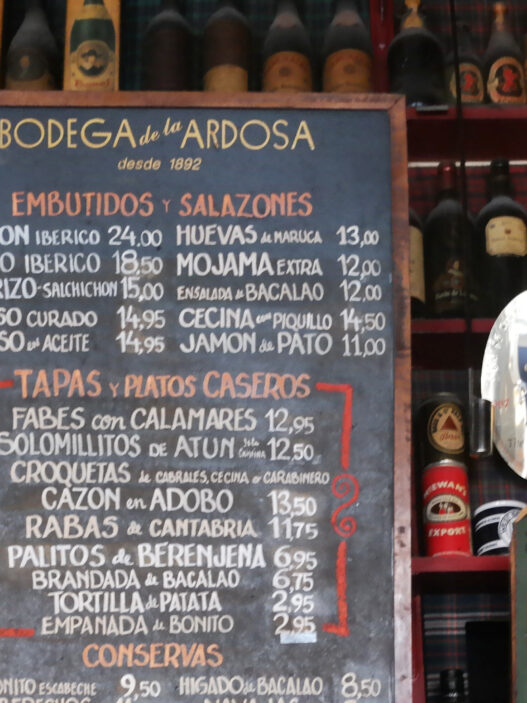 BODEGA de la ARDOSA
desde 1892
EMBUTIDOS Y SALAZONES
ON IBERICO 24,00
O IBERICO 18,50
RIZO-SALCHICHON 15,00
SO CURADO 14,95
SO en ACEITE 14,95
HUEVAS de MARUCA 13,00
MOJAMA EXTRA 12,00
ENSALADA de BACALAO 12,00
CECINA con PIQUILLO 14,50
JAMON de PATO 11,00
TAPAS y PLATOS CASEROS
FABES con CALAMARES 12,95
SOLOMILLITOS DE ATUN 12,50
CROQUETAS de CABRALES, CECINA o CARABINERO
CAZON en ADOBO 13,50
RABAS de CANTABRIA 11,75
PALITOS de BERENJENA 6,95
BRANDADA de BACALAO 6,75
TORTILLA de PATATA 2,95
EMPANADA de BONITO 2,95
CONSERVAS
ONITO ESCABECHE 9,50
HIGADO de BACALAO 8,50
EXPORT